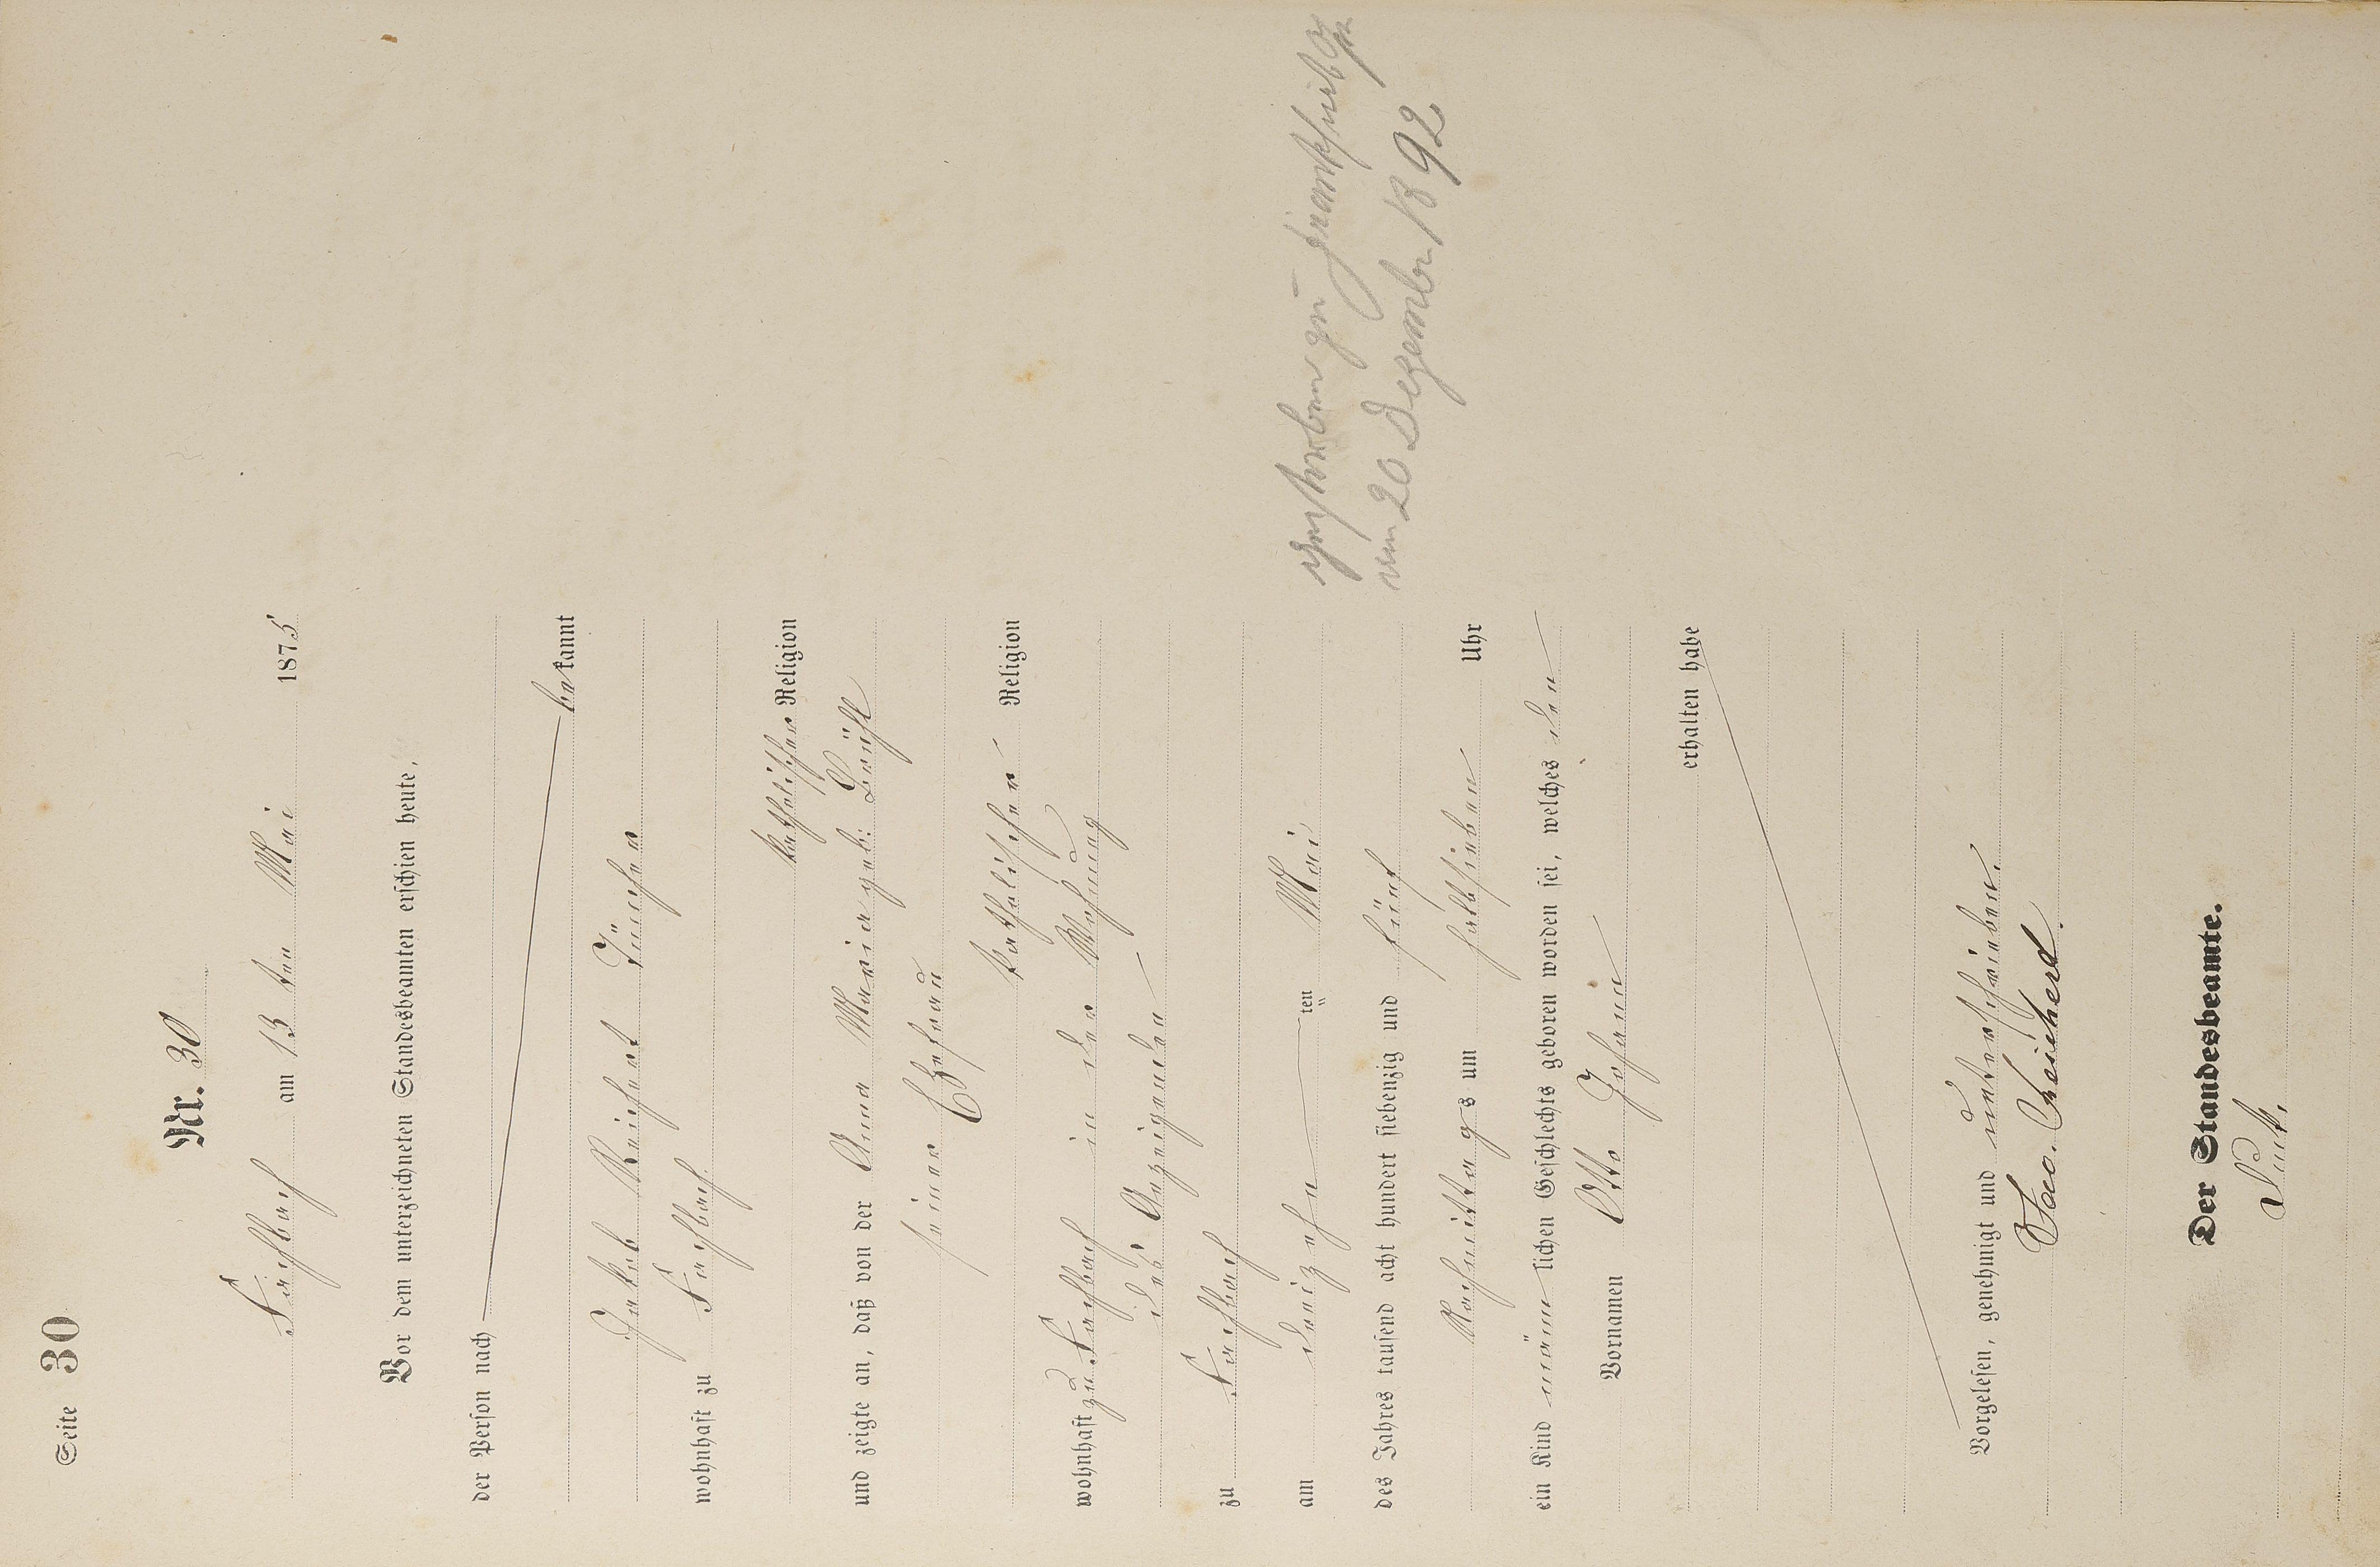 Seite 30
Nr. 30
Fachbach am 13 ten Mai 1875
Vor dem unterzeichneten Standesbeamten erschien heute,
der Person nach
bekannt
Jakob Reichert Tüncher
wohnhaft zu Fachbach
katholischer Religion
und zeigte an, daß von der Anna Maria geb: Brühl
seiner Ehefrau
katholischer Religion
wohnhaft zu Fachbach in der Wohnung
des Anzeigenden
zu Fachbach
am dreizehn ten Mai
des Jahres tausend acht hundert siebenzig und fünf
Nachmittags um halbsieben Uhr
ein Kind männlichen Geschlechts geboren worden sei, welches den
Vornamen Otto Johann
erhalten habe
Vorgelesen, genehmigt und unterschrieben.
Jac. Reichert
Der Standesbeamte.
gestorben zu Frankfurt
am 20 Dezember 1892